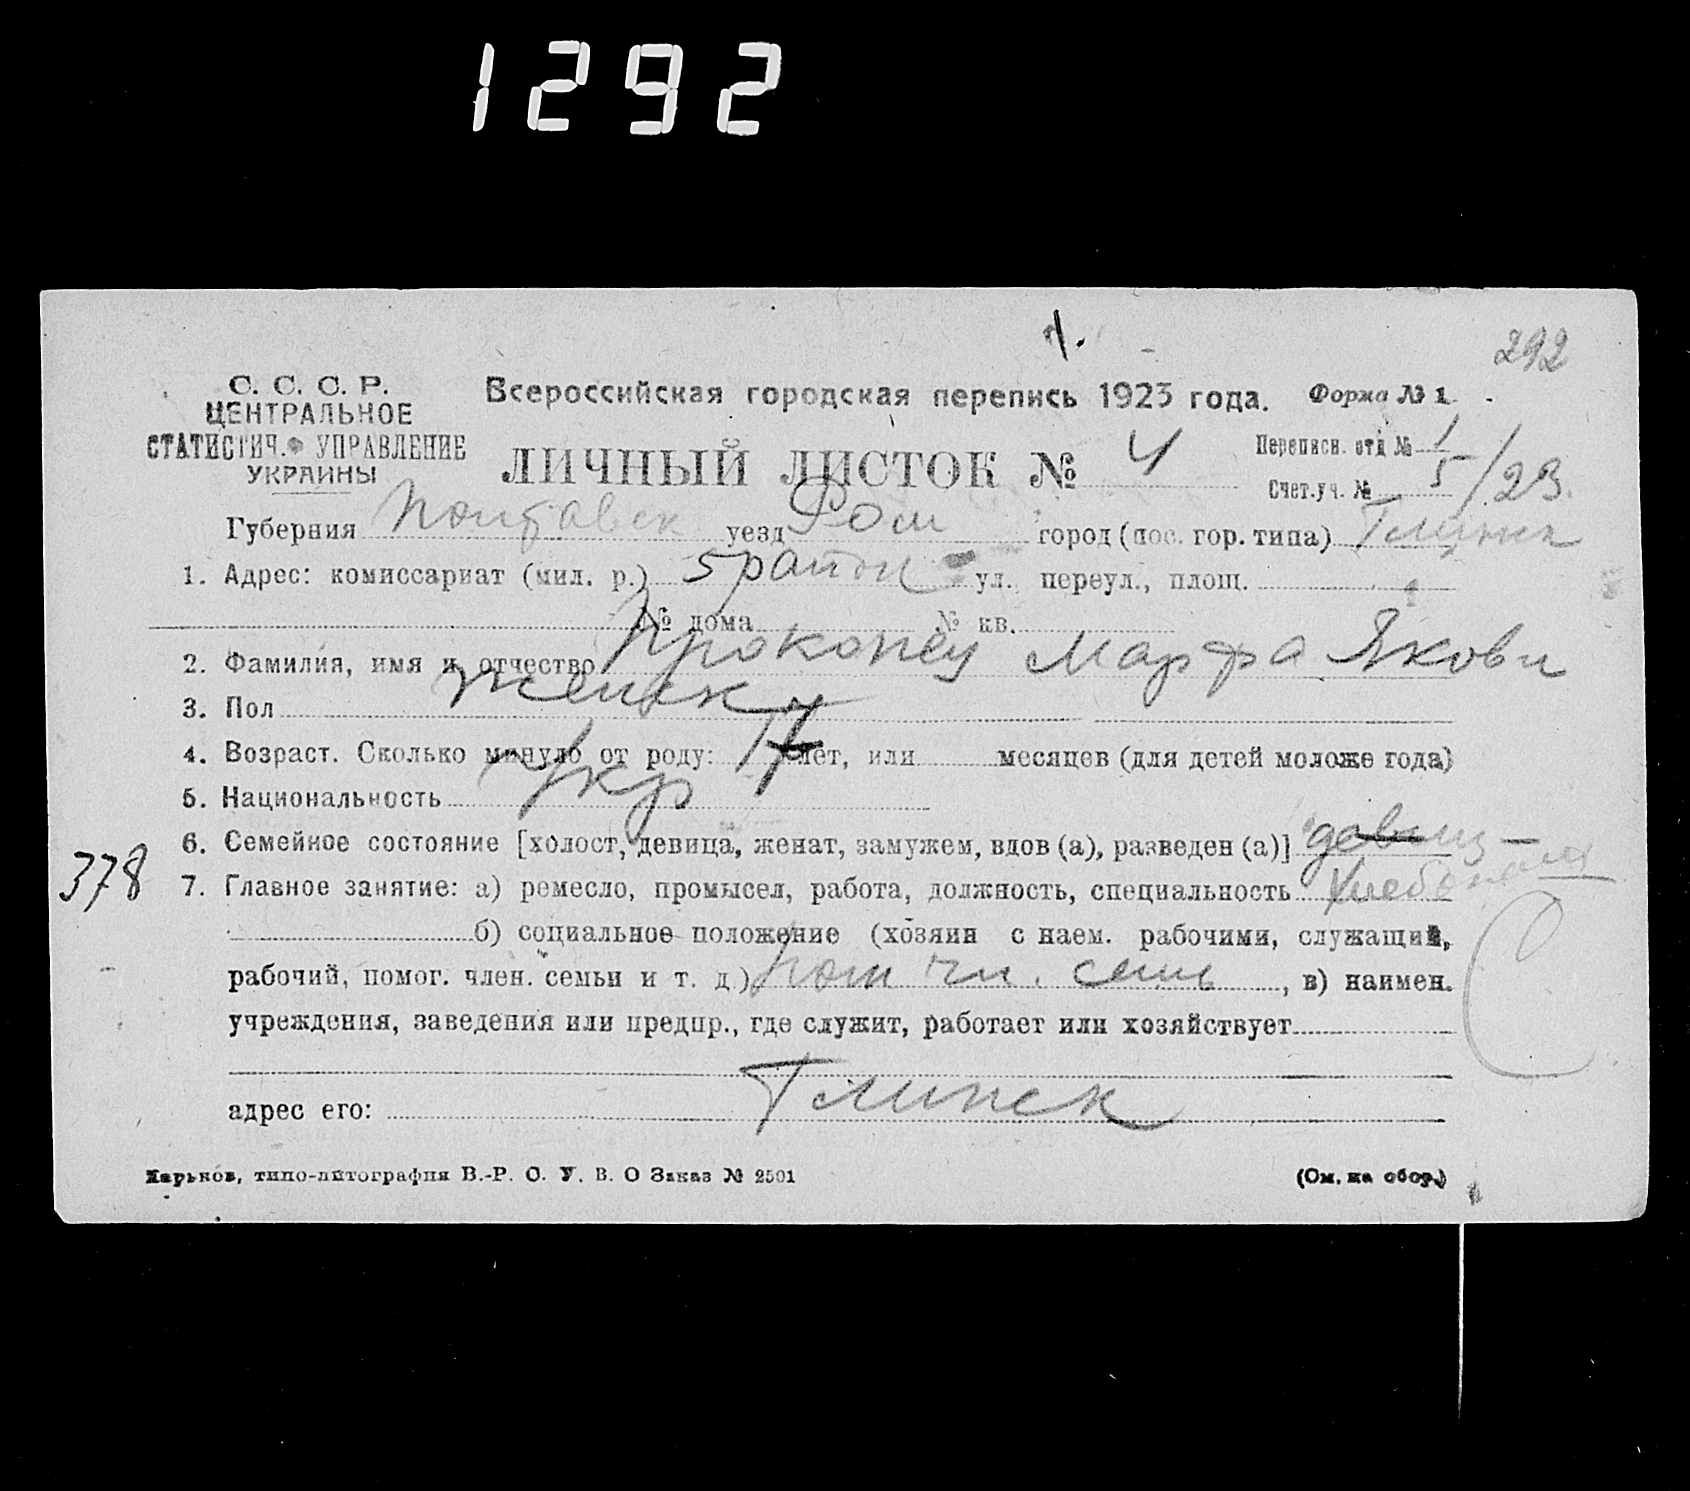 1292
1.
292
С. С. С. Р.
ЦЕНТРАЛЬНОЕ
СТАТИСТИЧ. УПРАВЛЕНИЕ
УКРАИНЫ
Всероссийская городская перепись 1923 года. Форма № 1.
ЛИЧНЫЙ ЛИСТОК № 4
Переписн. отд № 1
Счет.уч. № 5/23.
Губерния Полтавск уезд Ром город (пос. гор. типа) Глинск
1. Адрес: комиссариат (мил. р.) 5 район ул. переул., площ.
№ дома № кв.
2. Фамилия, имя и отчество Прокопец МарфаЯкови
3. Пол женск
4. Возраст. Сколько минуло от роду: 17 лет, или месяцев (для детей моложе года)
5. Национальность Укр
6. Семейное состояние [холост, девица, женат, замужем, вдов (а), разведен (а)] девиц
378
7. Главное занятие: а) ремесло, промысел, работа, должность, специальность
б) социальное положение (хозяин с наем. рабочими, служащий,
рабочий, помог. член. семьи и т. д.) пом чл. семь, в) наимен.
учреждения, заведения или предпр., где служит, работает или хозяйствует
адрес его: Глинск
Харьков, типо-литография В.-Р. О. У. В. О Заказ № 2501
(См. на обор.)